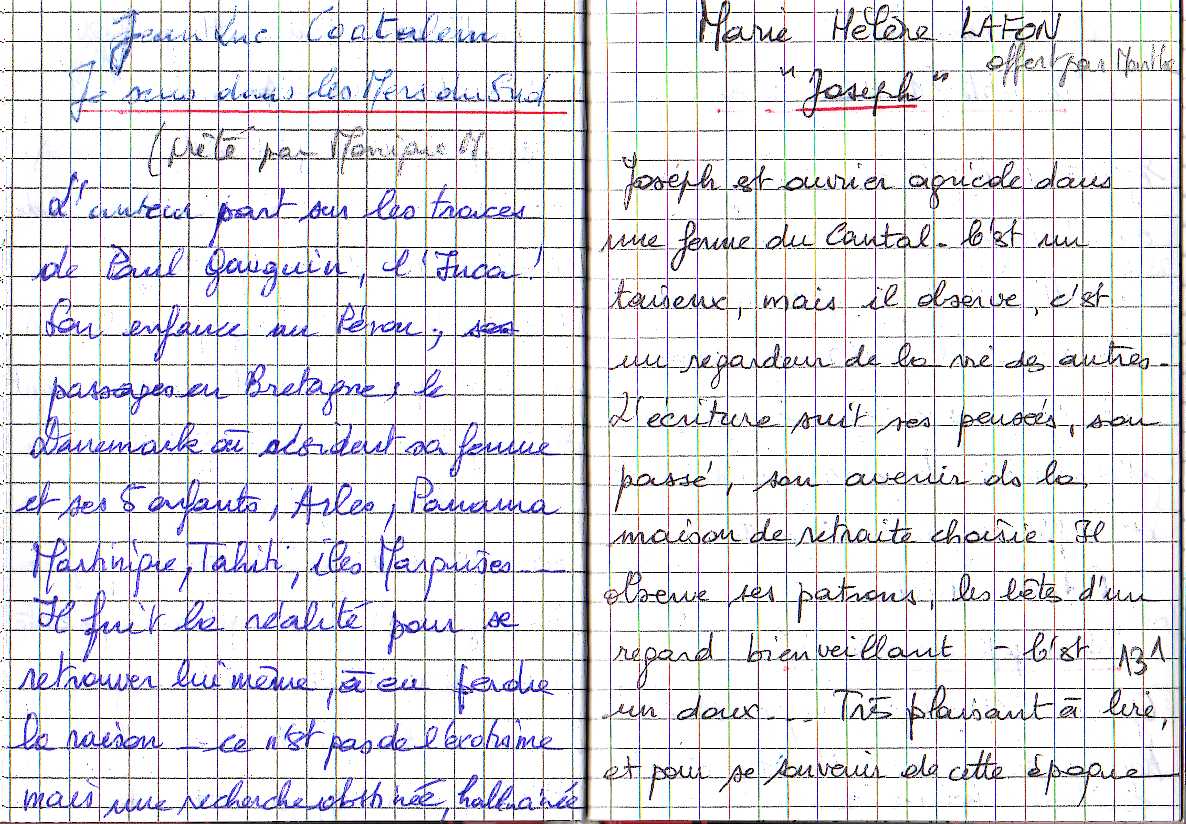 Jean Luc Coatalem
Je suis dans les Mers du Sud
(prêté par Monique M.
L'auteur part sur les traces
de Paul Gauguin, l'Inca!
Son enfance au Pérou, ses
passages en Bretagne, le
Danemark où résident sa femme
et ses 5 enfants, Arles, Panama
Martinique, Tahiti, îles Marquises...
Il fuit la réalité pour se
retrouver lui même, à en perdre
la raison - ce n'est pas de l'exotisme
mais une recherche obstinée, hallucinée
Marie Hélène LAFON
offert par Marthe
"Joseph"
Joseph est ouvrier agricole dans
une ferme du Cantal. C'est un
taiseux, mais il observe, c'est
un regardeur de la vie des autres.
L'écriture suit ses pensées, son
passé, son avenir ds la
maison de retraite choisie. Il
observe ses patrons, les bêtes d'un
regard bienveillant - C'est
131
un doux... Très plaisant à lire,
et pour se souvenir de cette époque